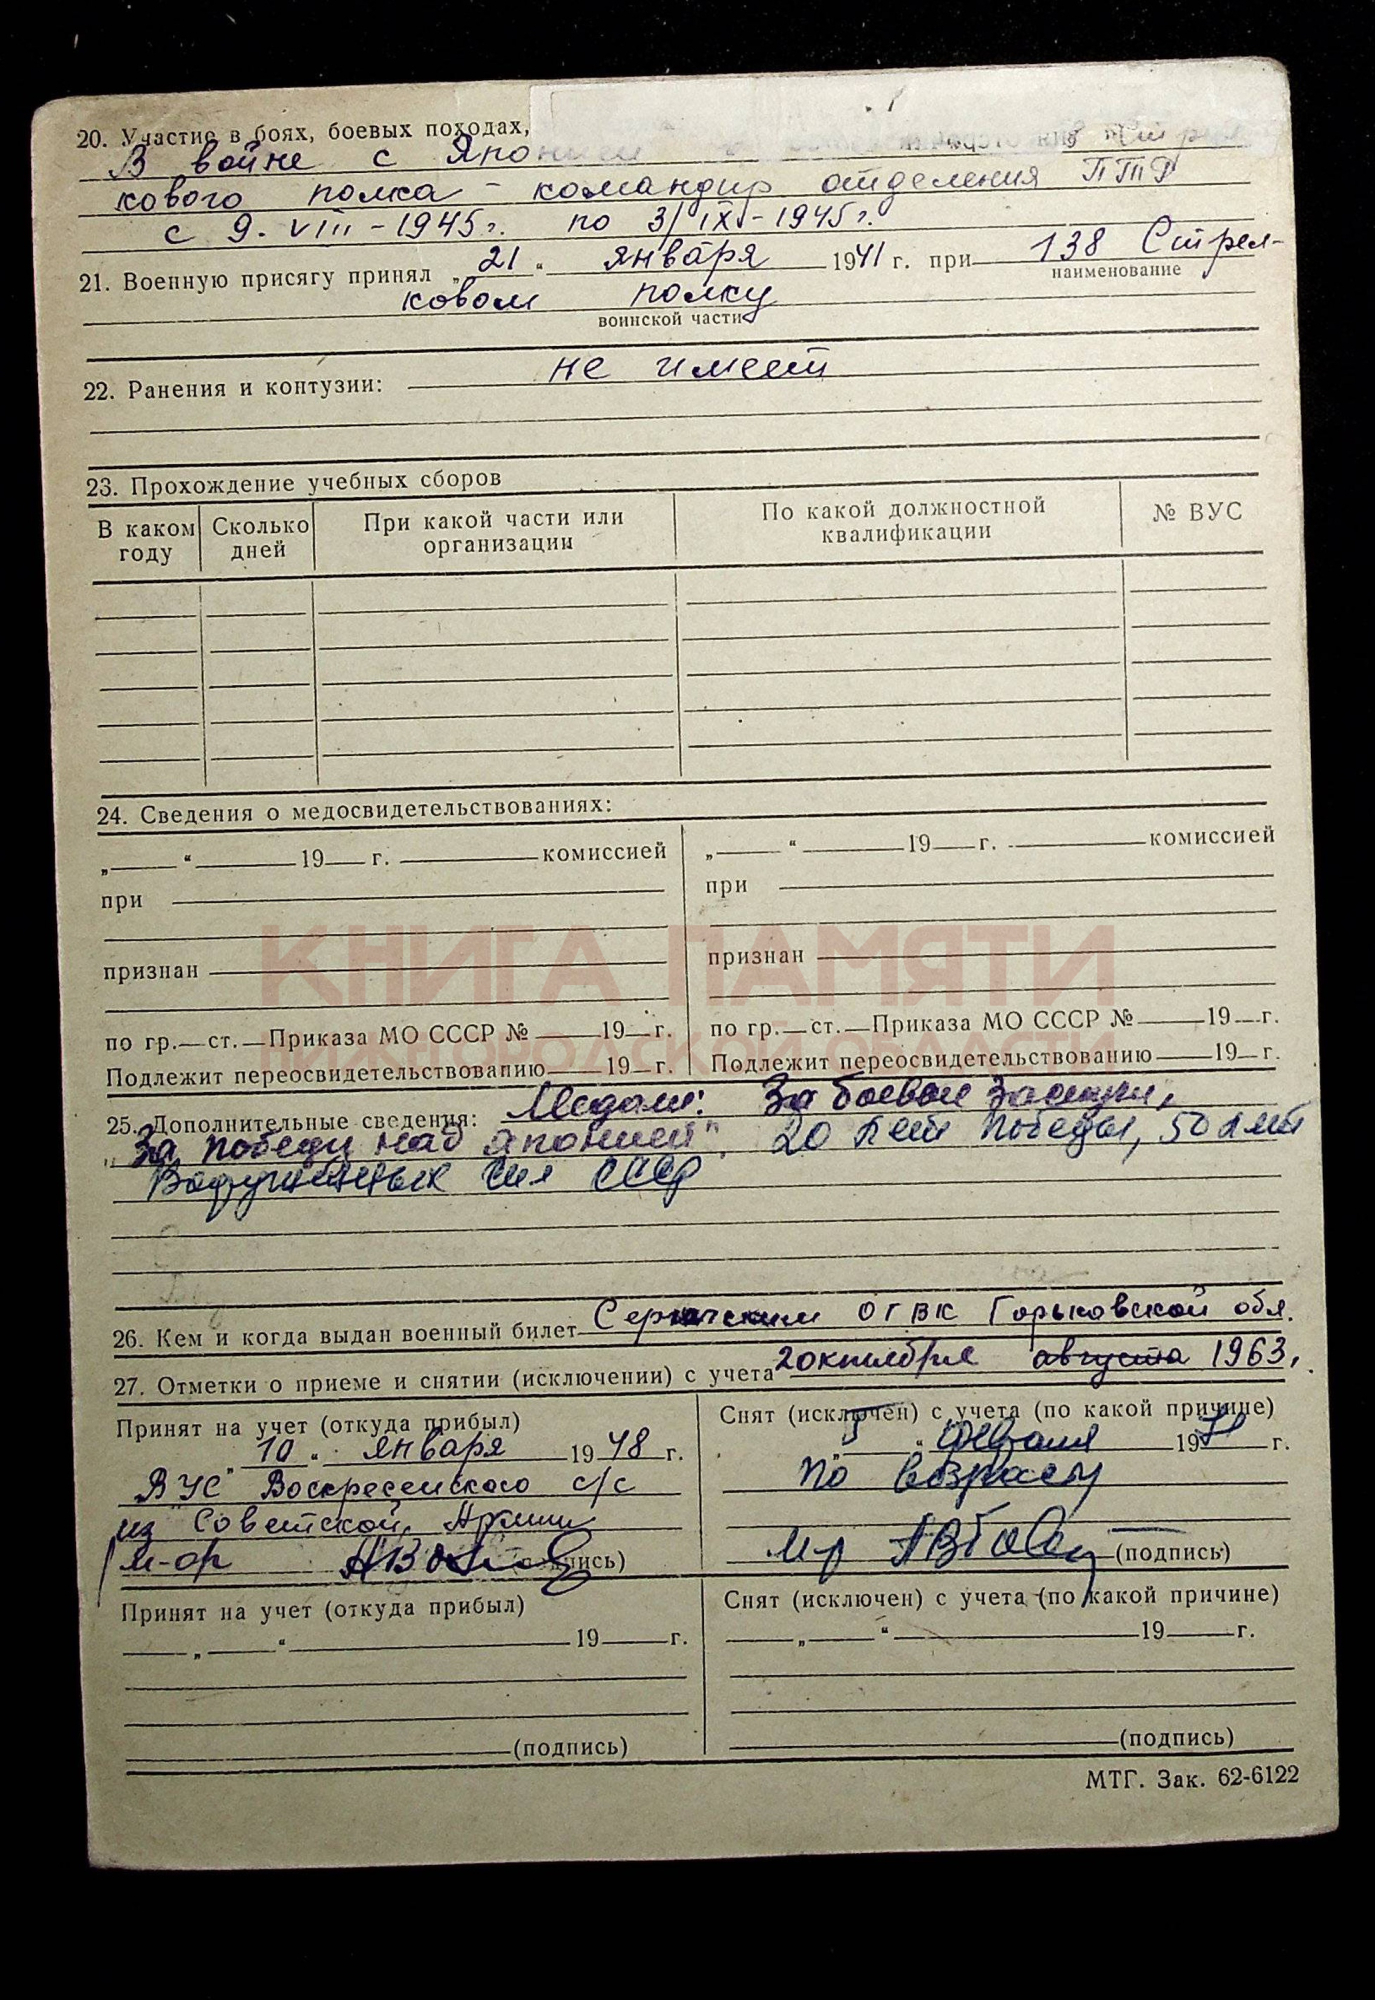 20. Участие в боях, боевых походах,
В войне с Японией
кового полка - командир отделения ПТР
с 9. VIII - 1945 г. по 3/IX - 1945 г.
21. Военную присягу принял „21“ января 1941 г. при 138 Стрел-
наименование
ковом полку
воинской части
22. Ранения и контузии: не имеет
23. Прохождение учебных сборов
В каком году Сколько дней При какой части или организации По какой должностной квалификации № ВУС
24. Сведения о медосвидетельствованиях:
„ “ 19 г. комиссией „ “ 19 г. комиссией
при при
признан признан
по гр. ст. Приказа МО СССР № 19 г. по гр. ст. Приказа МО СССР № 19 г.
Подлежит переосвидетельствованию 19 г. Подлежит переосвидетельствованию 19 г.
КНИГА ПАМЯТИ
НИЖЕГОРОДСКОЙ ОБЛАСТИ
25. Дополнительные сведения: Медали: За боевые Заслуги,
„За победу над Японией", 20 лет Победы, 50 лет
Вооруженных сил СССР
26. Кем и когда выдан военный билет Сергачским ОГВК Горьковской обл.
27. Отметки о приеме и снятии (исключении) с учета 2 октября августа 1963,
Принят на учет (откуда прибыл) Снят (исключен) с учета (по какой причине)
„10“ января 1948 г. „5“ февраля 1971 г.
ВУС Воскресенского с/с по возрасту
из Советской Армии
м-ор (подпись) м-р (подпись)
Принят на учет (откуда прибыл) Снят (исключен) с учета (по какой причине)
„ “ 19 г. „ “ 19 г.
(подпись) (подпись)
МТГ. Зак. 62-6122